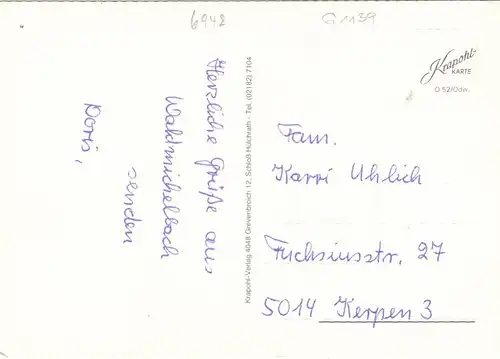 6942
G1139
Herzliche Grüße aus
Waldmichelbach
senden
Doris,
Krapohl-Verlag 4048 Grevenbroich 12, Schloß Hülchrath - Tel. (02182) 7104
Krapohl-
KARTE
O 52/Odw.
Fam.
Karri Uhlich
Fuchsiusstr. 27
5014 Kerpen 3